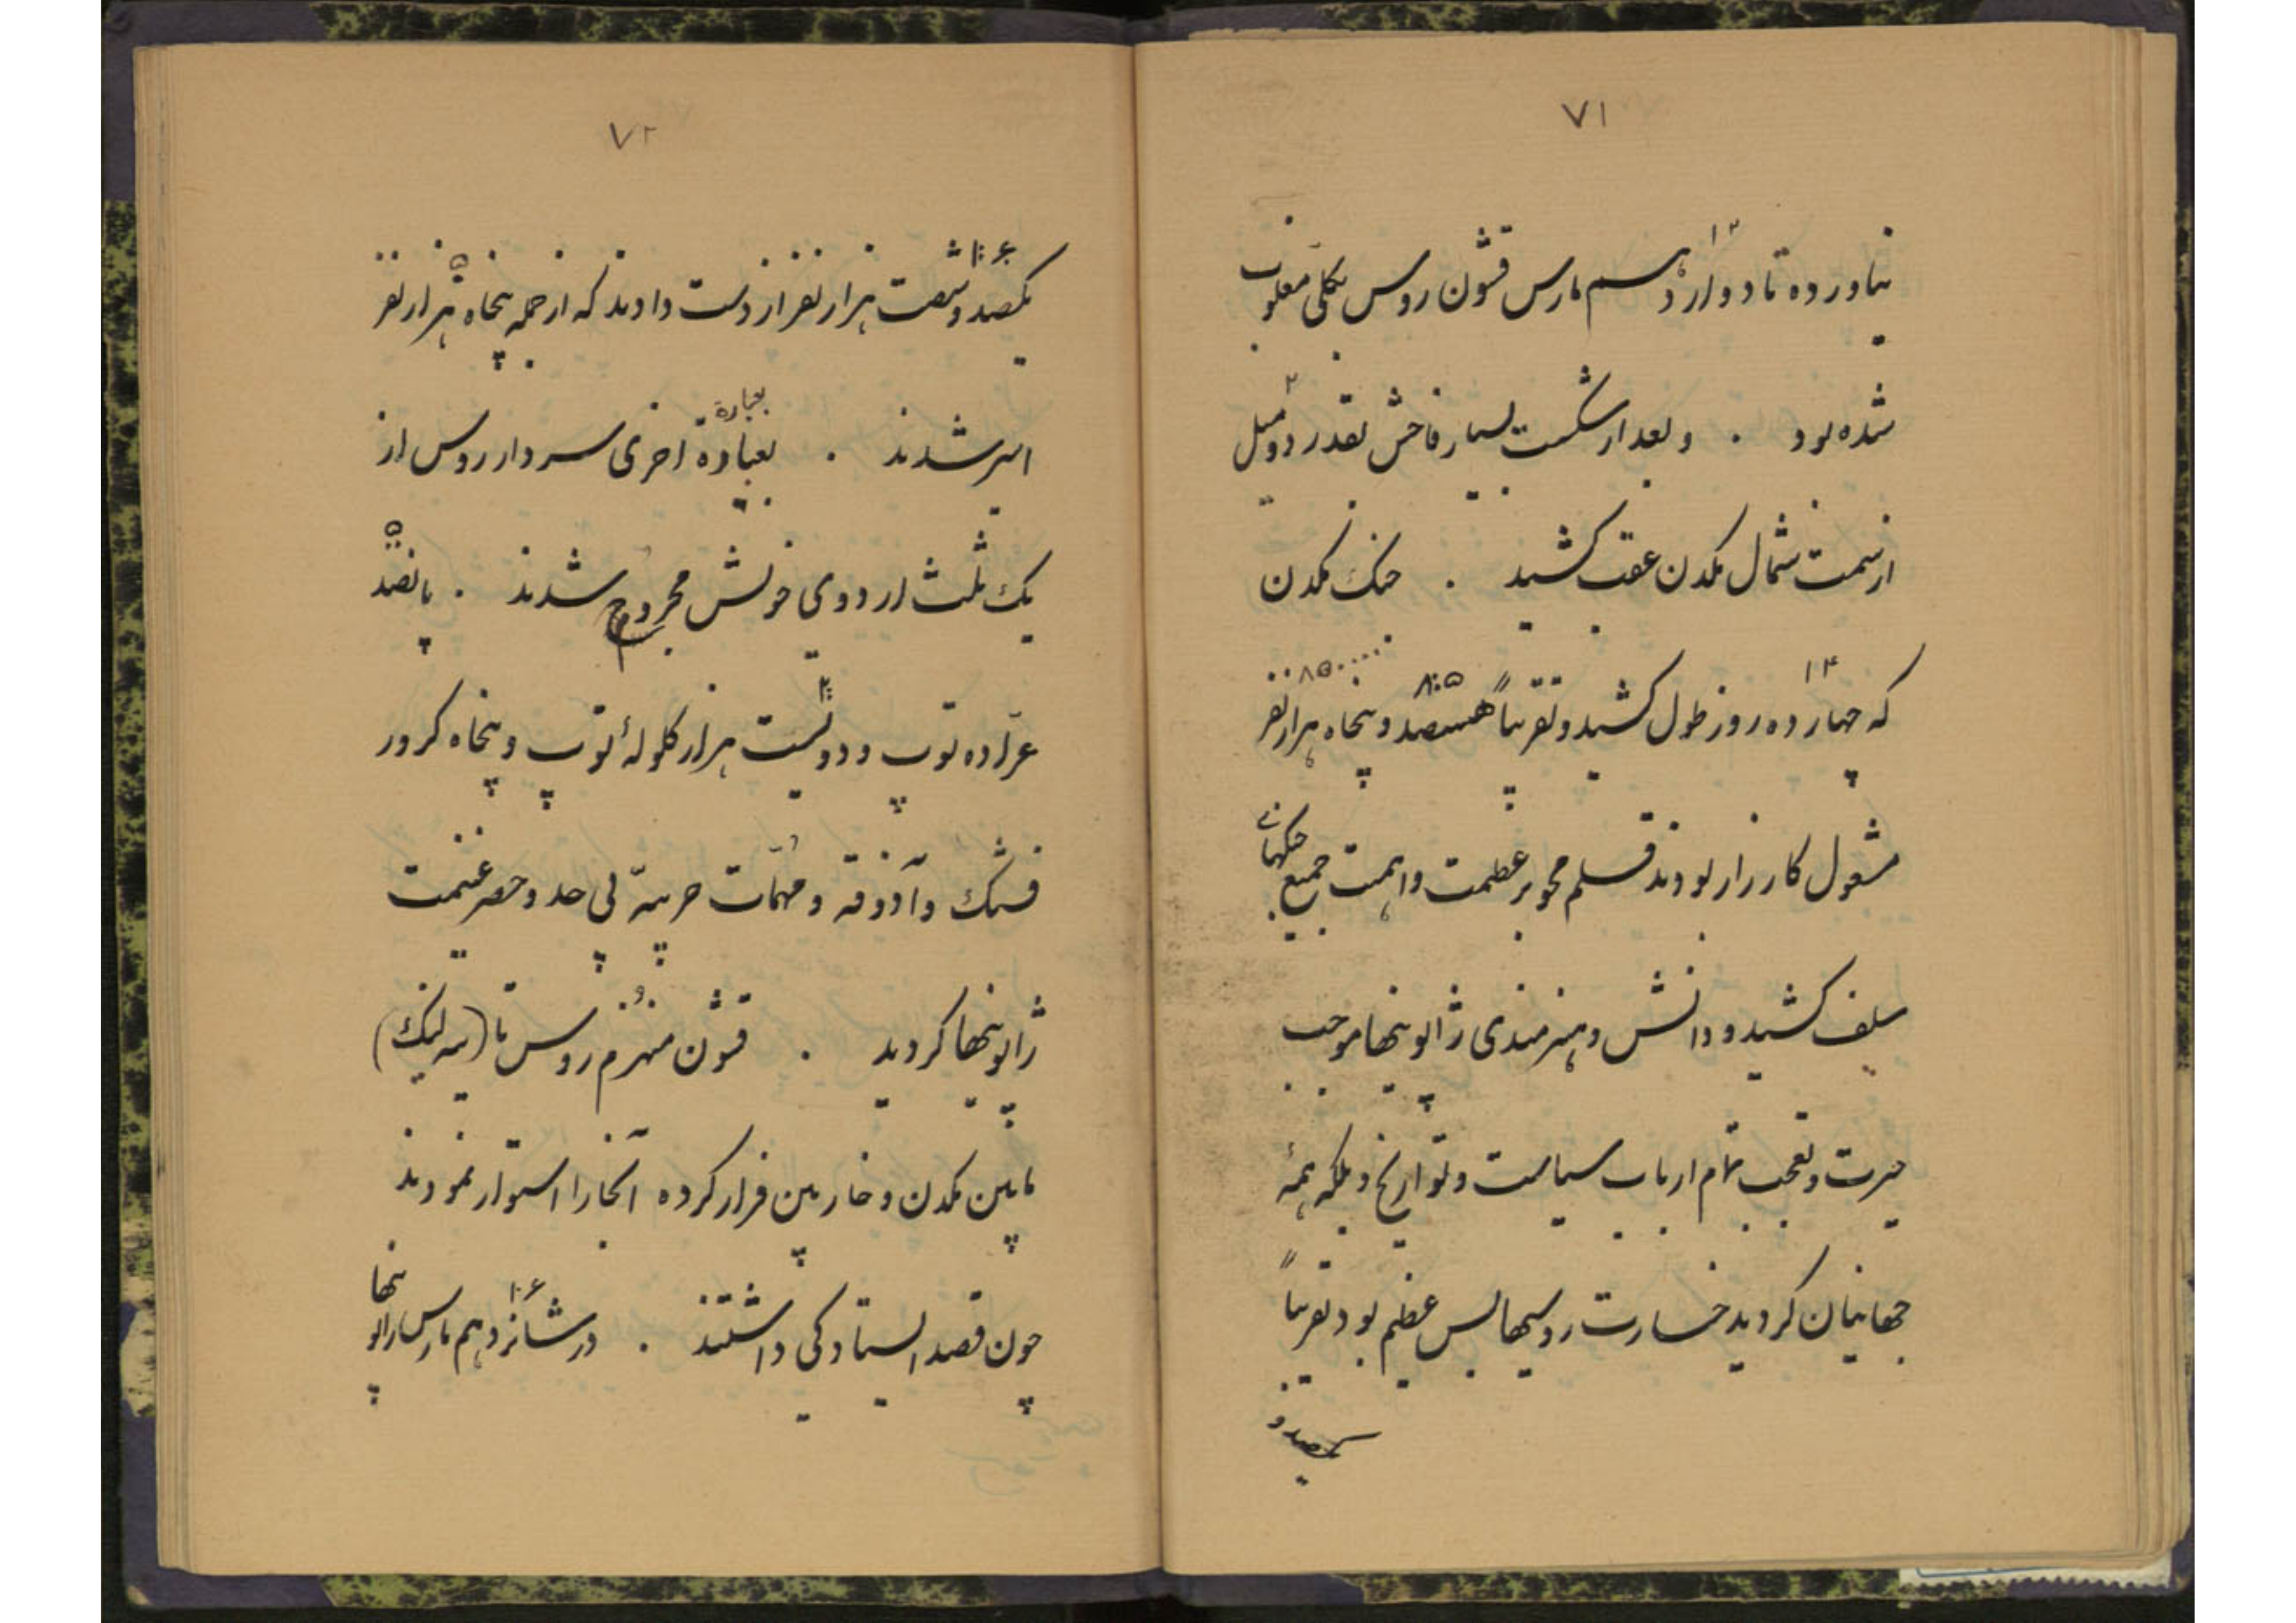 ۷۱
نیاورده تا دوازدهم مارس قشون روس بکلی مغلوب
۱۲
شده بود . و بعد از شکست بسیار فاحش بقدر دو میل
۲
از سمت شمال مکدن عقب کشید . جنگ مکدن
که چهارده روز طول کشید و تقریباً هشتصد و پنجاه هزار نفر
۱۴
مشغول کارزار بودند قلم محو بر عظمت و اهمیت جمیع جنگهای
سلف کشید و دانش و هنرمندی ژاپونیها موجب
حیرت و تعجب تمام ارباب سیاست و تواریخ و بلکه همهٔ
جهانیان گردید خسارت روسیها بس عظیم بود تقریباً
یکصد و
۷۲
یکصد و شصت هزار نفر از دست دادند که از جمله پنجاه هزار نفر
اسیر شدند . بعبارة اخری سردار روس از
بعبارة
یک ثلث اردوی خویش محروم شدند . پانصد
عرّاده توپ و دویست هزار گلولهٔ توپ و پنجاه کرور
فشنگ و آذوقه و مهمّات حربیّه بی حد و حصر غنیمت
ژاپونیها گردید . قشون منهزم روس تا (تیه لینگ)
مابین مکدن و خاربین فرار کرده آنجا را استوار نمودند
چون قصد ایستادگی داشتند . در شانزدهم مارس ژاپونیها
۱۶